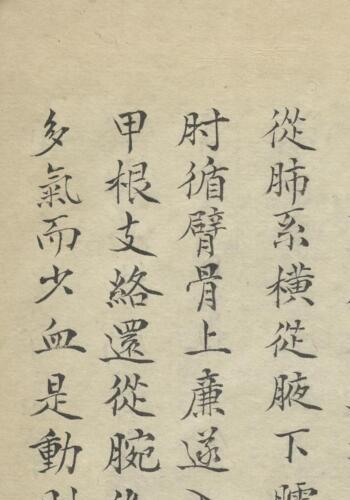 從肺系橫從腋下臑
肘循臂骨上廉遂入
甲根支絡還從腕後
多氣而少血是動則